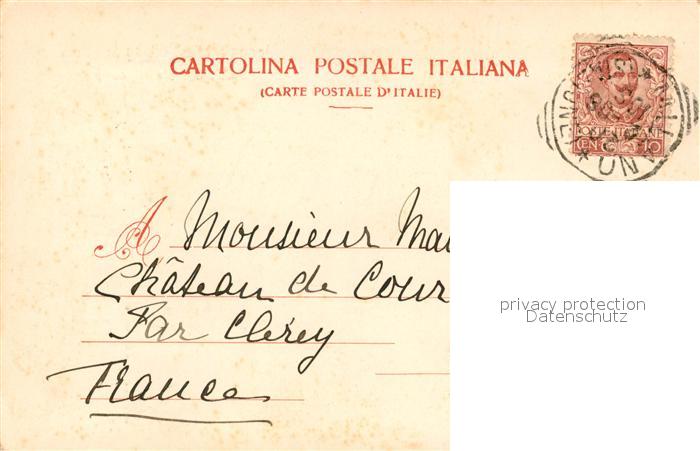 CARTOLINA POSTALE ITALIANA
(CARTE POSTALE D'ITALIE)
POSTE ITALIANE
CEN. 10
MILANO
A Monsieur
Château de Cour
Par Clérey
France
privacy protection
Datenschutz